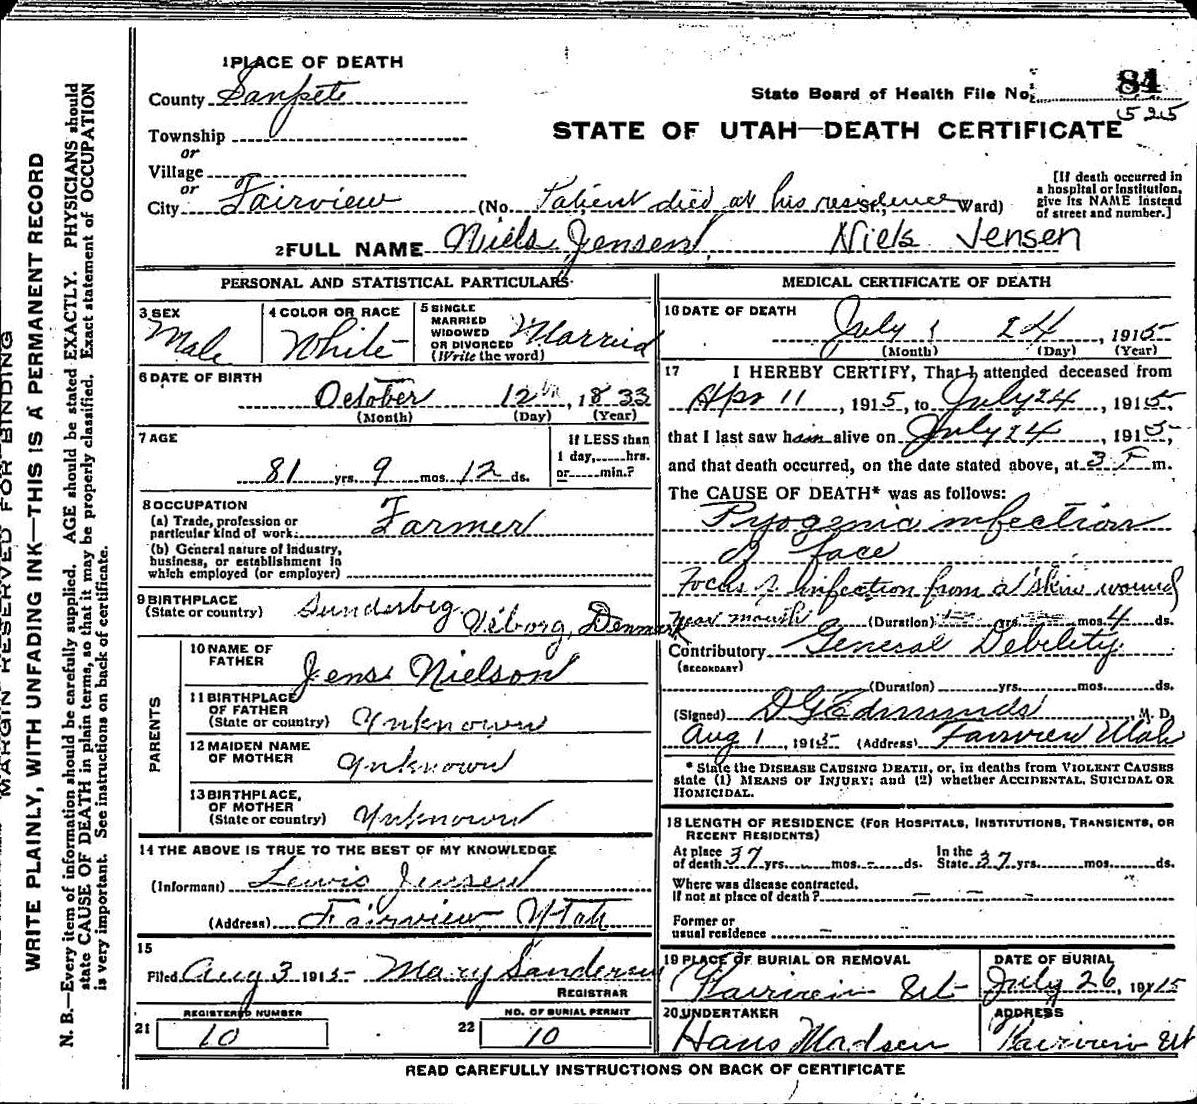 1 PLACE OF DEATH
County Sanpete
Township
or
Village
or
City Fairview (No. Patient died at his residence St.; Ward)
[If death occurred in
a hospital or institution,
give its NAME instead
of street and number.]
State Board of Health File No. 84
525
STATE OF UTAH—DEATH CERTIFICATE
2 FULL NAME Niels Jensen Niels Jensen
PERSONAL AND STATISTICAL PARTICULARS
3 SEX
Male
4 COLOR OR RACE
White
5 SINGLE
MARRIED
WIDOWED
OR DIVORCED
(Write the word)
Married
6 DATE OF BIRTH
October 12th, 1833
(Month) (Day) (Year)
7 AGE
81 yrs. 9 mos. 12 ds.
If LESS than
1 day,......hrs.
or......min.?
8 OCCUPATION
(a) Trade, profession or
particular kind of work: Farmer
(b) General nature of industry,
business, or establishment in
which employed (or employer)
9 BIRTHPLACE
(State or country) Sunderbeg Viborg, Denmark
PARENTS
10 NAME OF
FATHER Jens Nielson
11 BIRTHPLACE
OF FATHER
(State or country) Unknown
12 MAIDEN NAME
OF MOTHER Unknown
13 BIRTHPLACE,
OF MOTHER
(State or country) Unknown
14 THE ABOVE IS TRUE TO THE BEST OF MY KNOWLEDGE
(Informant) Lewis Jensen
(Address) Fairview Utah
15
Filed Aug 3 1915 Mary Sanderson
REGISTRAR
21 REGISTERED NUMBER
10
22 NO. OF BURIAL PERMIT
10
MEDICAL CERTIFICATE OF DEATH
16 DATE OF DEATH
July 24, 1915
(Month) (Day) (Year)
17 I HEREBY CERTIFY, That I attended deceased from
Apr 11, 1915, to July 24, 1915,
that I last saw him alive on July 24, 1915,
and that death occurred, on the date stated above, at 3 P m.
The CAUSE OF DEATH* was as follows:
Pyogenic infection
of face
Focus of Infection from a skin wound
near mouth (Duration) yrs. mos. 4 ds.
Contributory General Debility
(SECONDARY)
(Duration) yrs. mos. ds.
(Signed) D G Edmunds M. D.
Aug 1, 1915 (Address) Fairview Utah
* State the DISEASE CAUSING DEATH, or, in deaths from VIOLENT CAUSES
state (1) MEANS OF INJURY; and (2) whether ACCIDENTAL, SUICIDAL OR
HOMICIDAL.
18 LENGTH OF RESIDENCE (FOR HOSPITALS, INSTITUTIONS, TRANSIENTS, OR
RECENT RESIDENTS)
At place
of death 37 yrs. - mos. - ds.
In the
State 37 yrs. mos. ds.
Where was disease contracted.
if not at place of death?
Former or
usual residence
19 PLACE OF BURIAL OR REMOVAL
Fairview Ut
DATE OF BURIAL
July 26, 1915
20 UNDERTAKER
Hans Madsen
ADDRESS
Fairview Ut
READ CAREFULLY INSTRUCTIONS ON BACK OF CERTIFICATE
MARGIN RESERVED FOR BINDING
WRITE PLAINLY, WITH UNFADING INK—THIS IS A PERMANENT RECORD
N. B.—Every item of information should be carefully supplied. AGE should be stated EXACTLY. PHYSICIANS should
state CAUSE OF DEATH in plain terms, so that it may be properly classified. Exact statement of OCCUPATION
is very important. See instructions on back of certificate.